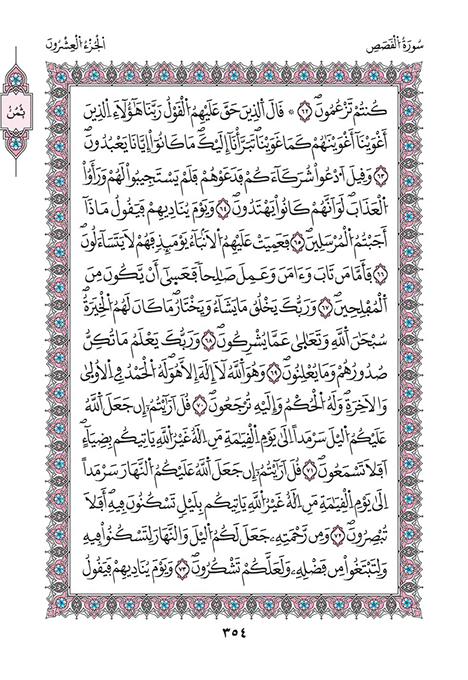 سُورَةُ الْقَصَصِ
الْجُزْءُ الْعِشْرُونَ
ثُمُنْ
كُنتُمْ تَزْعُمُونَۖ ٦٢ ۞ قَالَ اَ۬لذِينَ حَقَّ عَلَيْهِمُ اُ۬لْقَوْلُ رَبَّنَا هَٰٓؤُلَآءِ اِ۬لذِينَ
أَغْوَيْنَآ أَغْوَيْنَٰهُمْ كَمَا غَوَيْنَاۖ تَبَرَّأْنَآ إِلَيْكَۖ مَا كَانُوٓاْ إِيَّانَا يَعْبُدُونَۖ
٦٣ وَقِيلَ اَ۟دْعُواْ شُرَكَآءَكُمْ فَدَعَوْهُمْ فَلَمْ يَسْتَجِيبُواْ لَهُمْ وَرَأَوُاْ
اُ۬لْعَذَابَۖ لَوَ اَنَّهُمْ كَانُواْ يَهْتَدُونَۖ ٦٤ وَيَوْمَ يُنَادِيهِمْ فَيَقُولُ مَاذَآ
أَجَبْتُمُ اُ۬لْمُرْسَلِينَۖ ٦٥ فَعَمِيَتْ عَلَيْهِمُ اُ۬لَانۢبَآءُ يَوْمَئِذٍ فَهُمْ لَا يَتَسَآءَلُونَۖ
٦٦ فَأَمَّا مَن تَابَ وَءَامَنَ وَعَمِلَ صَٰلِحاً فَعَس۪يٰٓ أَنْ يَّكُونَ مِنَ
اَ۬لْمُفْلِحِينَۖ ٦٧ وَرَبُّكَ يَخْلُقُ مَا يَشَآءُ وَيَخْتَارُۖ مَا كَانَ لَهُمُ اُ۬لْخِيَرَةُۖ
سُبْحَٰنَ اَ۬للَّهِ وَتَعَٰل۪يٰ عَمَّا يُشْرِكُونَۖ ٦٨ وَرَبُّكَ يَعْلَمُ مَا تُكِنُّ
صُدُورُهُمْ وَمَا يُعْلِنُونَۖ ٦٩ وَهُوَ اَ۬للَّهُ لَآ إِلَٰهَ إِلَّا هُوَۖ لَهُ اُ۬لْحَمْدُ فِے اِ۬لُاول۪يٰ
وَالَاخِرَةِۖ وَلَهُ اُ۬لْحُكْمُ وَإِلَيْهِ تُرْجَعُونَۖ ٧٠ قُلَ اَرَٰٓيْتُمُۥٓ إِن جَعَلَ اَ۬للَّهُ
عَلَيْكُمُ اُ۬ليْلَ سَرْمَداً اِلَيٰ يَوْمِ اِ۬لْقِيَٰمَةِ مَنِ اِلَٰهٌ غَيْرُ اُ۬للَّهِ يَاتِيكُم بِضِيَآءٍۖ
اَفَلَا تَسْمَعُونَۖ ٧١ قُلَ اَرَٰٓيْتُمُۥٓ إِن جَعَلَ اَ۬للَّهُ عَلَيْكُمُ اُ۬لنَّهَارَ سَرْمَداً
اِلَيٰ يَوْمِ اِ۬لْقِيَٰمَةِ مَنِ اِلَٰهٌ غَيْرُ اُ۬للَّهِ يَاتِيكُم بِلَيْلٖ تَسْكُنُونَ فِيهِۖ أَفَلَا
تُبْصِرُونَۖ ٧٢ وَمِن رَّحْمَتِهِۦ جَعَلَ لَكُمُ اُ۬ليْلَ وَالنَّهَارَ لِتَسْكُنُواْ فِيهِ
وَلِتَبْتَغُواْ مِن فَضْلِهِۦ وَلَعَلَّكُمْ تَشْكُرُونَۖ ٧٣ وَيَوْمَ يُنَادِيهِمْ فَيَقُولُ
٣٥٤